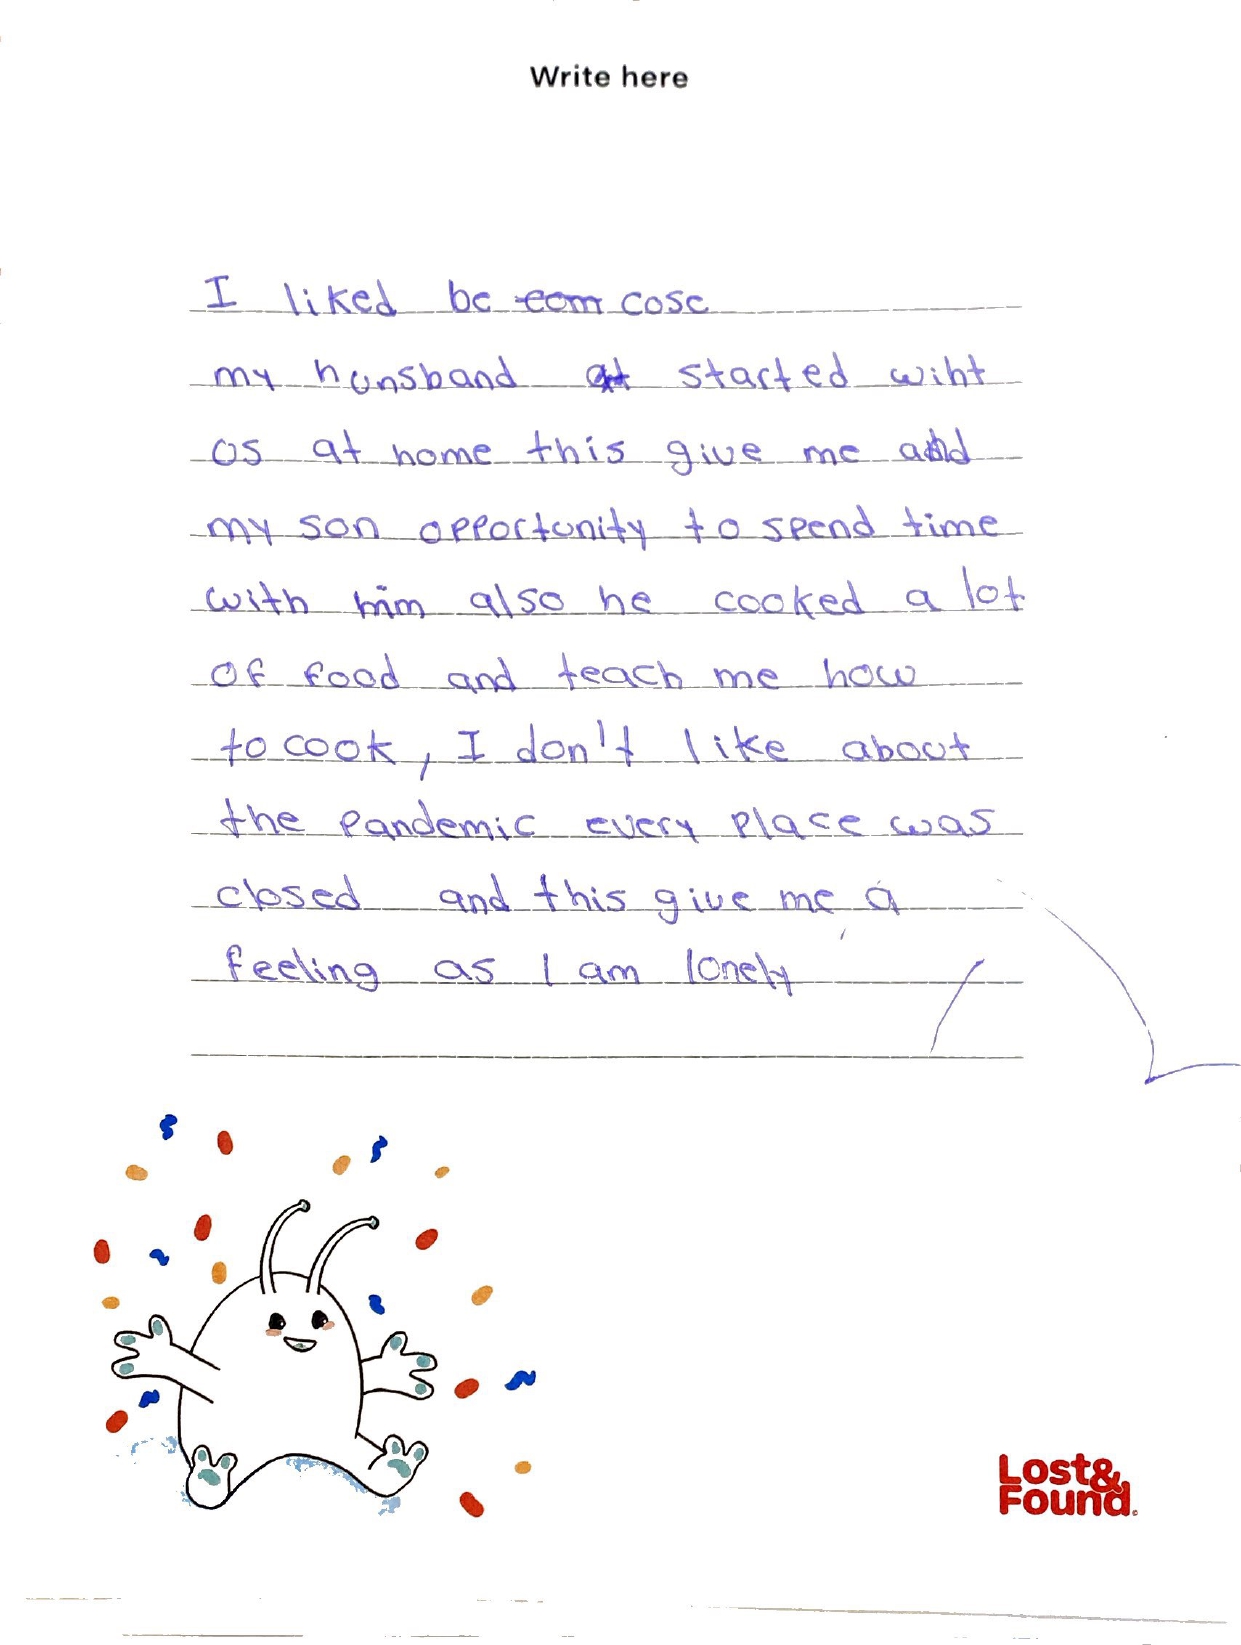 Write here
I liked be com cose
my hunsband at started wiht
os at home this give me add
my son opportunity to spend time
with him also he cooked a lot
of food and teach me how
to cook, I don't like about
the pandemic every place was
closed and this give me a
feeling as I am lonely
Lost&
Found